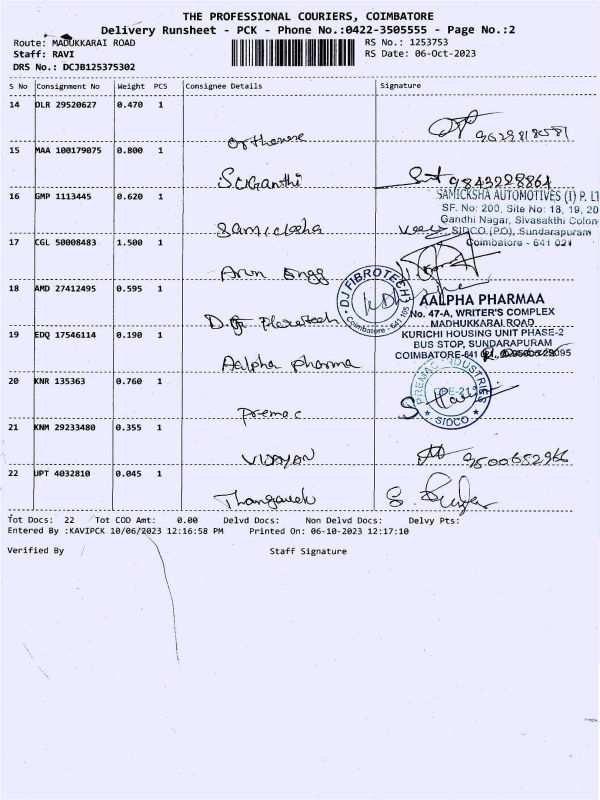 THE PROFESSIONAL COURIERS, COIMBATORE
Delivery Runsheet - PCK - Phone No.:0422-3505555 - Page No.:2
Route: MADUKKARAI ROAD
RS No.: 1253753
Staff: RAVI
RS Date: 06-Oct-2023
DRS No.: DCJB125375302
S No Consignment No Weight PCS Consignee Details Signature
14 OLR 29520627 0.470 1
15 MAA 100179075 0.800 1
SUGanthi 9843228864
16 GMP 1113445 0.620 1
Samicksha
SAMICKSHA AUTOMOTIVES (I) P. LT
SF. No: 200, Site No: 18, 19, 20
Gandhi Nagar, Sivasakthi Colon
SIDCO (P.O), Sundarapuram
Coimbatore - 641 021
17 CGL 50008483 1.500 1
Arun Engg
18 AMD 27412495 0.595 1
DJ FIBROTECH
Coimbatore - 641 105
19 EDQ 17546114 0.190 1
Aalpha pharma
AALPHA PHARMAA
No. 47-A, WRITER'S COMPLEX
MADHUKKARAI ROAD
KURICHI HOUSING UNIT PHASE-2
BUS STOP, SUNDARAPURAM
COIMBATORE-641
20 KNR 135363 0.760 1
Premac
PREMAC INDUSTRIES
SIDCO
21 KNM 29233480 0.355 1
VIJAYAN 9500652966
22 UPT 4032810 0.045 1
Tot Docs: 22 Tot COD Amt: 0.00 Delvd Docs: Non Delvd Docs: Delvy Pts:
Entered By :KAVIPCK 10/06/2023 12:16:58 PM Printed On: 06-10-2023 12:17:10
Verified By Staff Signature